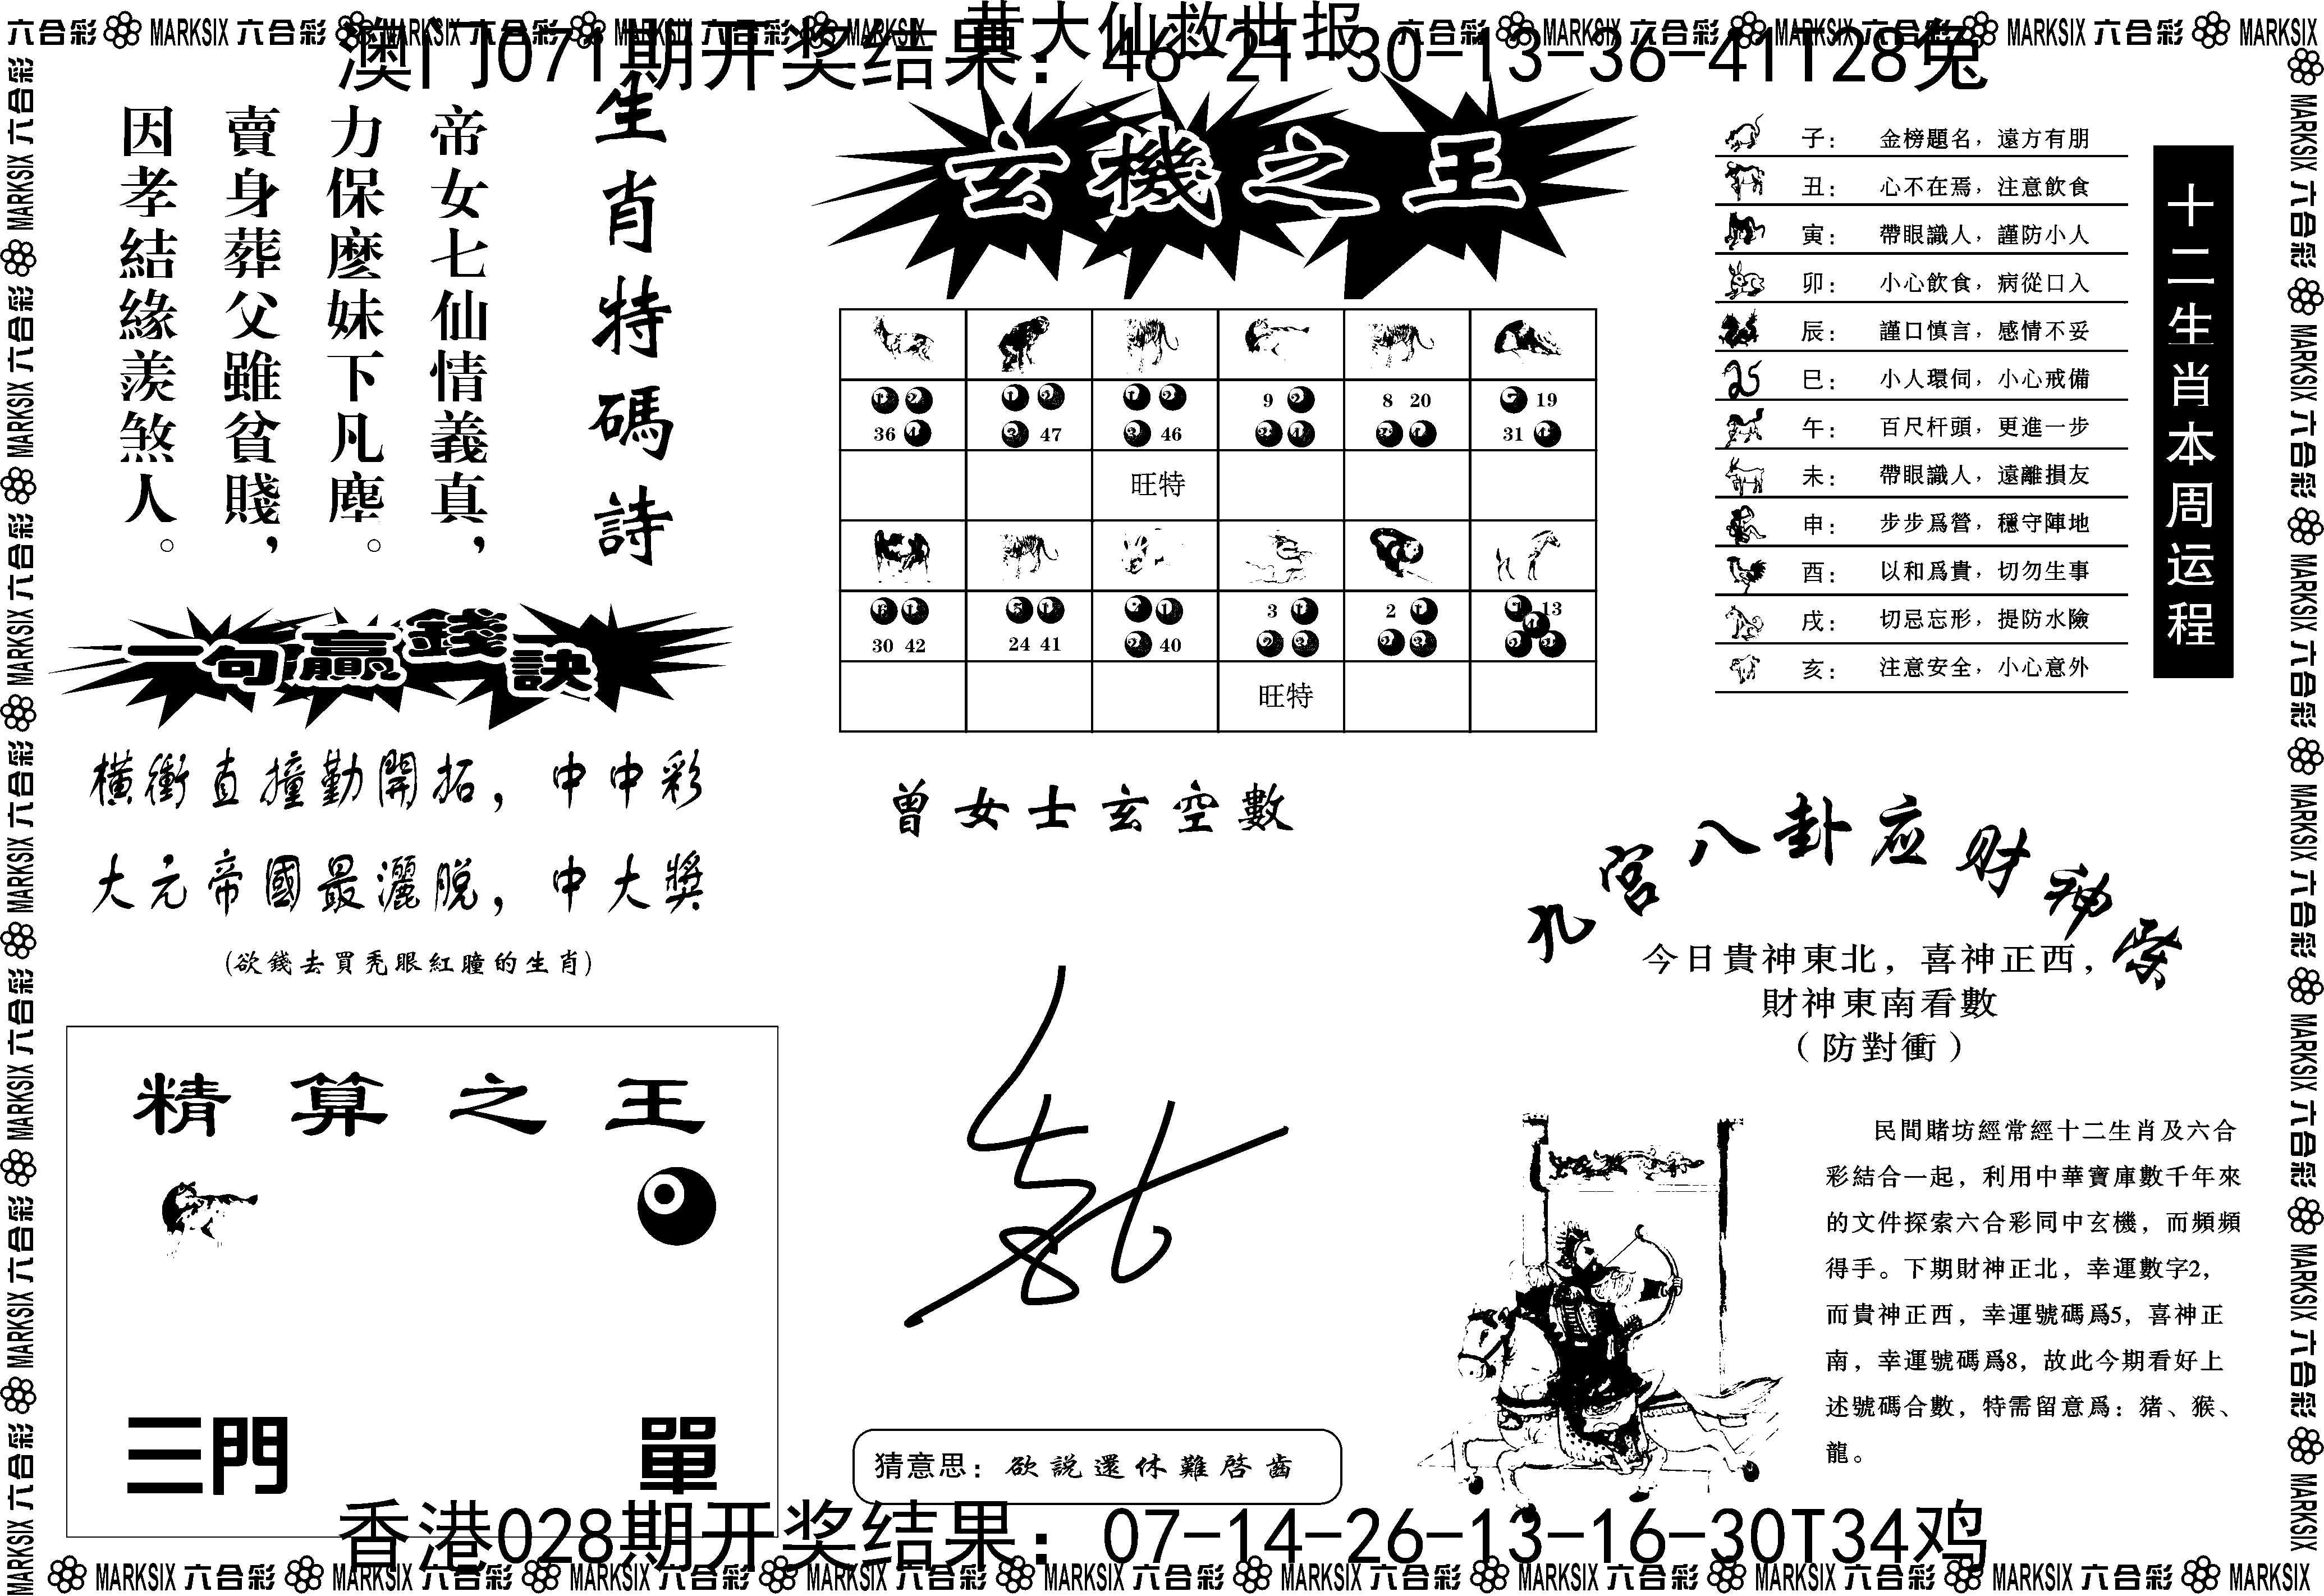 黄大仙救世报
澳门071期开奖结果：46-21-30-13-36-41T28兔
六合彩 MARKSIX 六合彩 MARKSIX 六合彩 MARKSIX 六合彩 MARKSIX
六合彩 MARKSIX 六合彩 MARKSIX 六合彩 MARKSIX 六合彩 MARKSIX
生肖特碼詩
帝女七仙情義真，
力保麽妹下凡塵。
賣身葬父雖貧賤，
因孝結緣羨煞人。
玄機之王
36 47 46 9 8 20 19
31
旺特
3 2 13
30 42 24 41 40
旺特
十二生肖本周运程
子：金榜題名，遠方有朋
丑：心不在焉，注意飲食
寅：帶眼識人，謹防小人
卯：小心飲食，病從口入
辰：謹口慎言，感情不妥
巳：小人環伺，小心戒備
午：百尺杆頭，更進一步
未：帶眼識人，遠離損友
申：步步爲營，穩守陣地
酉：以和爲貴，切勿生事
戌：切忌忘形，提防水險
亥：注意安全，小心意外
一句贏錢訣
橫衝直撞勤開拓，中中彩
大元帝國最灑脫，中大獎
(欲錢去買禿眼紅瞳的生肖)
曾女士玄空數
猜意思：欲説還休難啓齒
九宮八卦应财神
今日貴神東北，喜神正西，
財神東南看數
（防對衝）
民間賭坊經常經十二生肖及六合
彩結合一起，利用中華寶庫數千年來
的文件探索六合彩同中玄機，而頻頻
得手。下期財神正北，幸運數字2，
而貴神正西，幸運號碼爲5，喜神正
南，幸運號碼爲8，故此今期看好上
述號碼合數，特需留意爲：猪、猴、
龍。
精算之王
三門
單
香港028期开奖结果：07-14-26-13-16-30T34鸡
MARKSIX 六合彩 MARKSIX 六合彩 MARKSIX 六合彩 MARKSIX 六合彩 MARKSIX 六合彩 MARKSIX 六合彩 MARKSIX 六合彩 MARKSIX 六合彩 MARKSIX 六合彩 MARKSIX